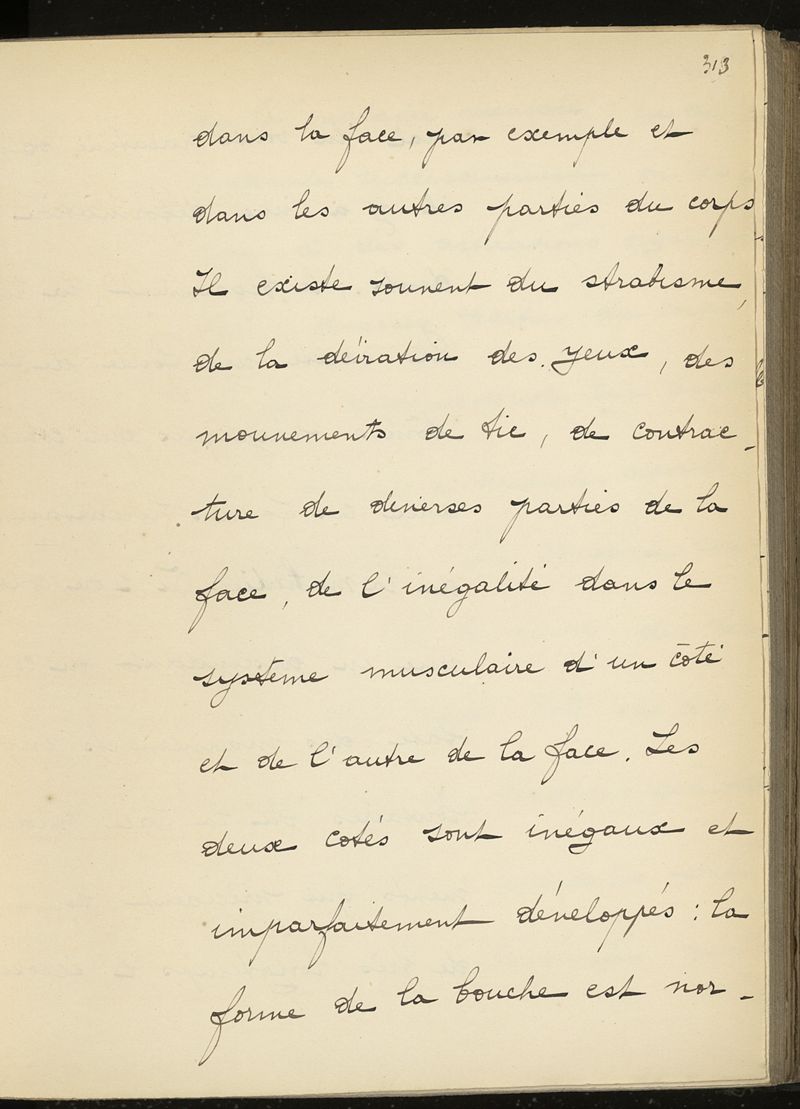 313
dans la face, par exemple et
dans les autres parties du corps
Il existe souvent du strabisme,
de la déviation des yeux, des
mouvements de tic, de contrac-
ture de diverses parties de la
face, de l'inégalité dans le
système musculaire d'un côté
et de l'autre de la face. Les
deux cotés sont inégaux et
imparfaitement développés : la
forme de la bouche est nor-